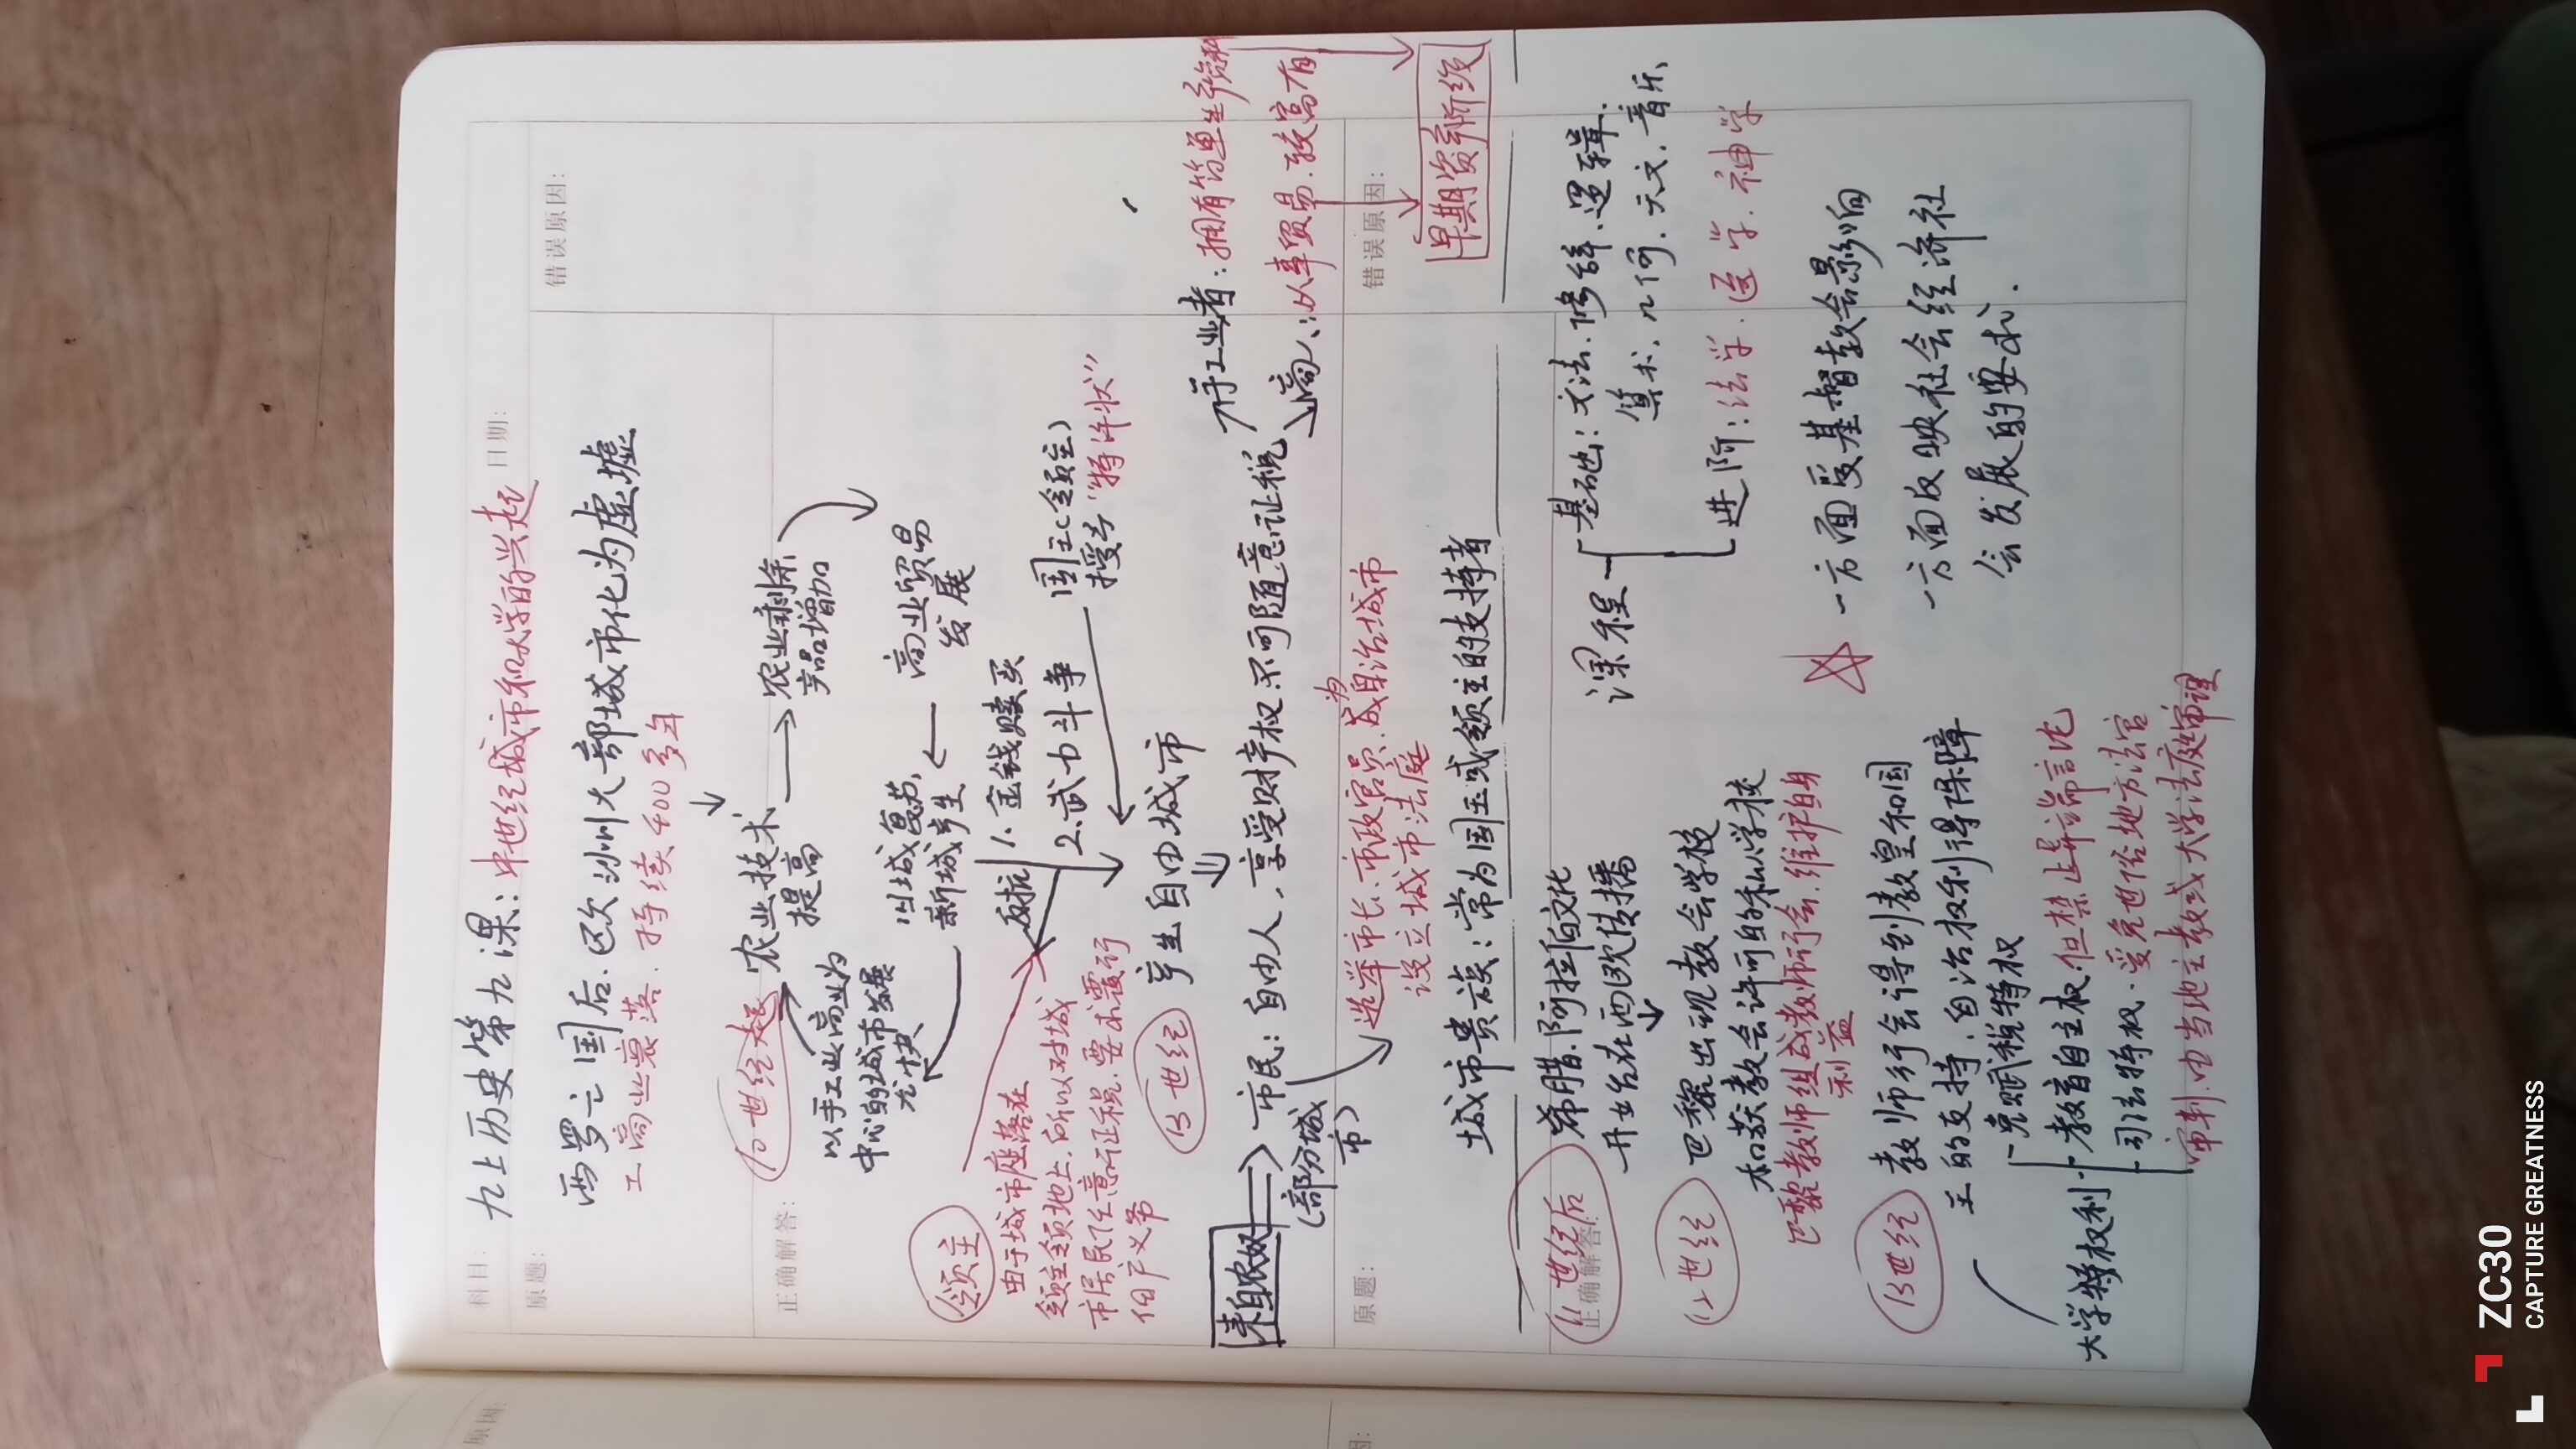 科目:
九上历史第九课:中世纪城市和大学的兴起
日期:
原题:
错误原因:
西罗亡国后.欧洲大部城市化为虚墟
工商业衰落.持续400多年
10世纪起
农业技术
提高
农业剩除
产品增加
以手工业商业为
中心的城市发展
尤快
旧城复苏
新城产生
商业贸易
发展
正确解答:
领主
由于城市座落在
领主领地上.所以对城
市居民任意征税.要求履行
佃户义务
反抗
1.金钱赎买
2.武力斗争
国王(领主)
授予"特许状"
13世纪
产生自由城市
来自农奴
(部分城
市)
市民:自由人,享受财产权.不可随意证税
手工业者:拥有简单生产资料
商人:从事贸易.较富有
早期资产阶级
选举市长.市政官员.成为自治城市
设立城市法庭
原题:
错误原因:
城市贵族:常为国王或领主的支持者
11世纪后
正确解答:
希腊.阿拉伯文化
开始在西欧传播
12世纪
巴黎出现教会学校
和获教会许可的私人学校
巴黎教师组成教师行会.维护自身
利益
13世纪
教师行会得到教皇和国
王的支持.自治权利得保障
大学特权利
免赋税特权
教育自主权.但禁止异端言论
司法特权.受免世俗地方法官
审判.由当地主教或大学法庭审理
课程
基础:文法.修辞.逻辑.
算术.几何.天文.音乐
进阶:法学.医学.神学
一方面受基督教会影响
一方面反映社会经济社
会发展的要求.
原因:
ZC30
CAPTURE GREATNESS